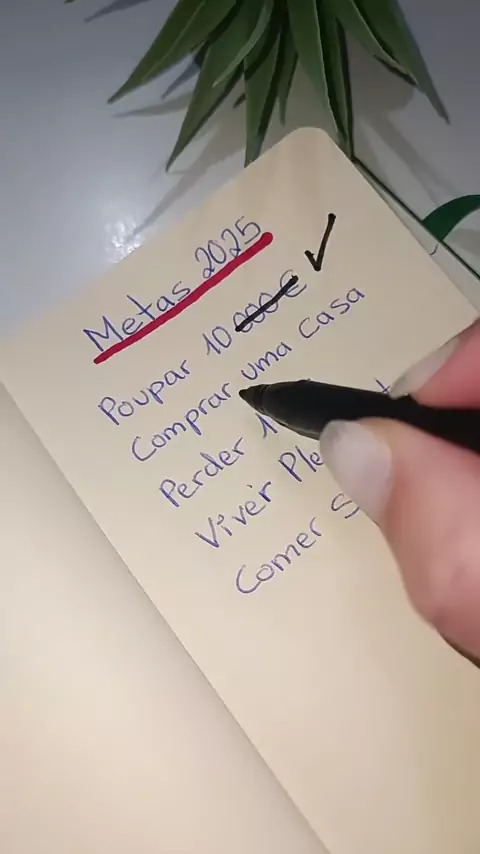 Metas 2025
Poupar 10 000€ ✓
Comprar uma casa
Perder 1
Viver Ple
Comer S